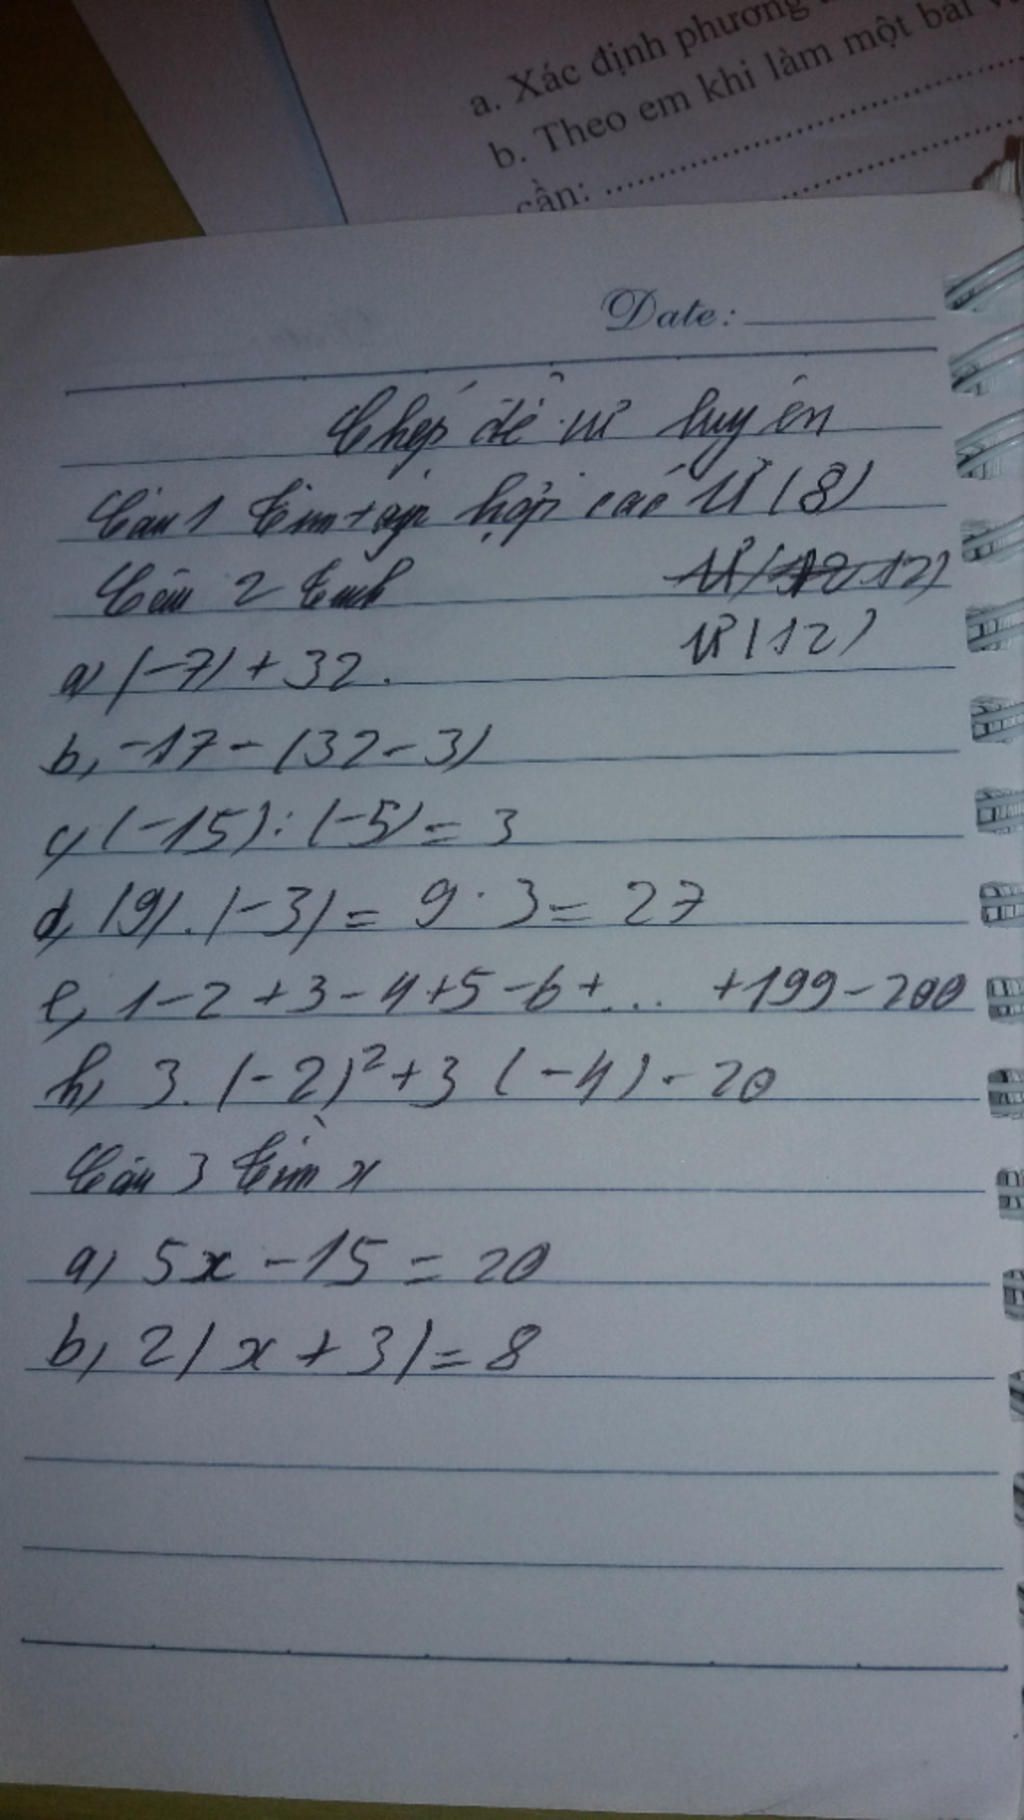 a. Xác định phương
b. Theo em khi làm một bài v
cần:
Date:
Chép đề tự luyện
Câu 1 Tìm tập hợp các Ư(8)
Câu 2 Tính
Ư(12)
a, (-7) + 32.
b, -17 - (32 - 3)
c, (-15) : (-5) = 3
d, (9) . (-3) = 9 . 3 = 27
e, 1 - 2 + 3 - 4 + 5 - 6 + ... + 199 - 200
h, 3. (-2)² + 3 (-4) - 20
Câu 3 Tìm x
a, 5x - 15 = 20
b, 2(x + 3) = 8